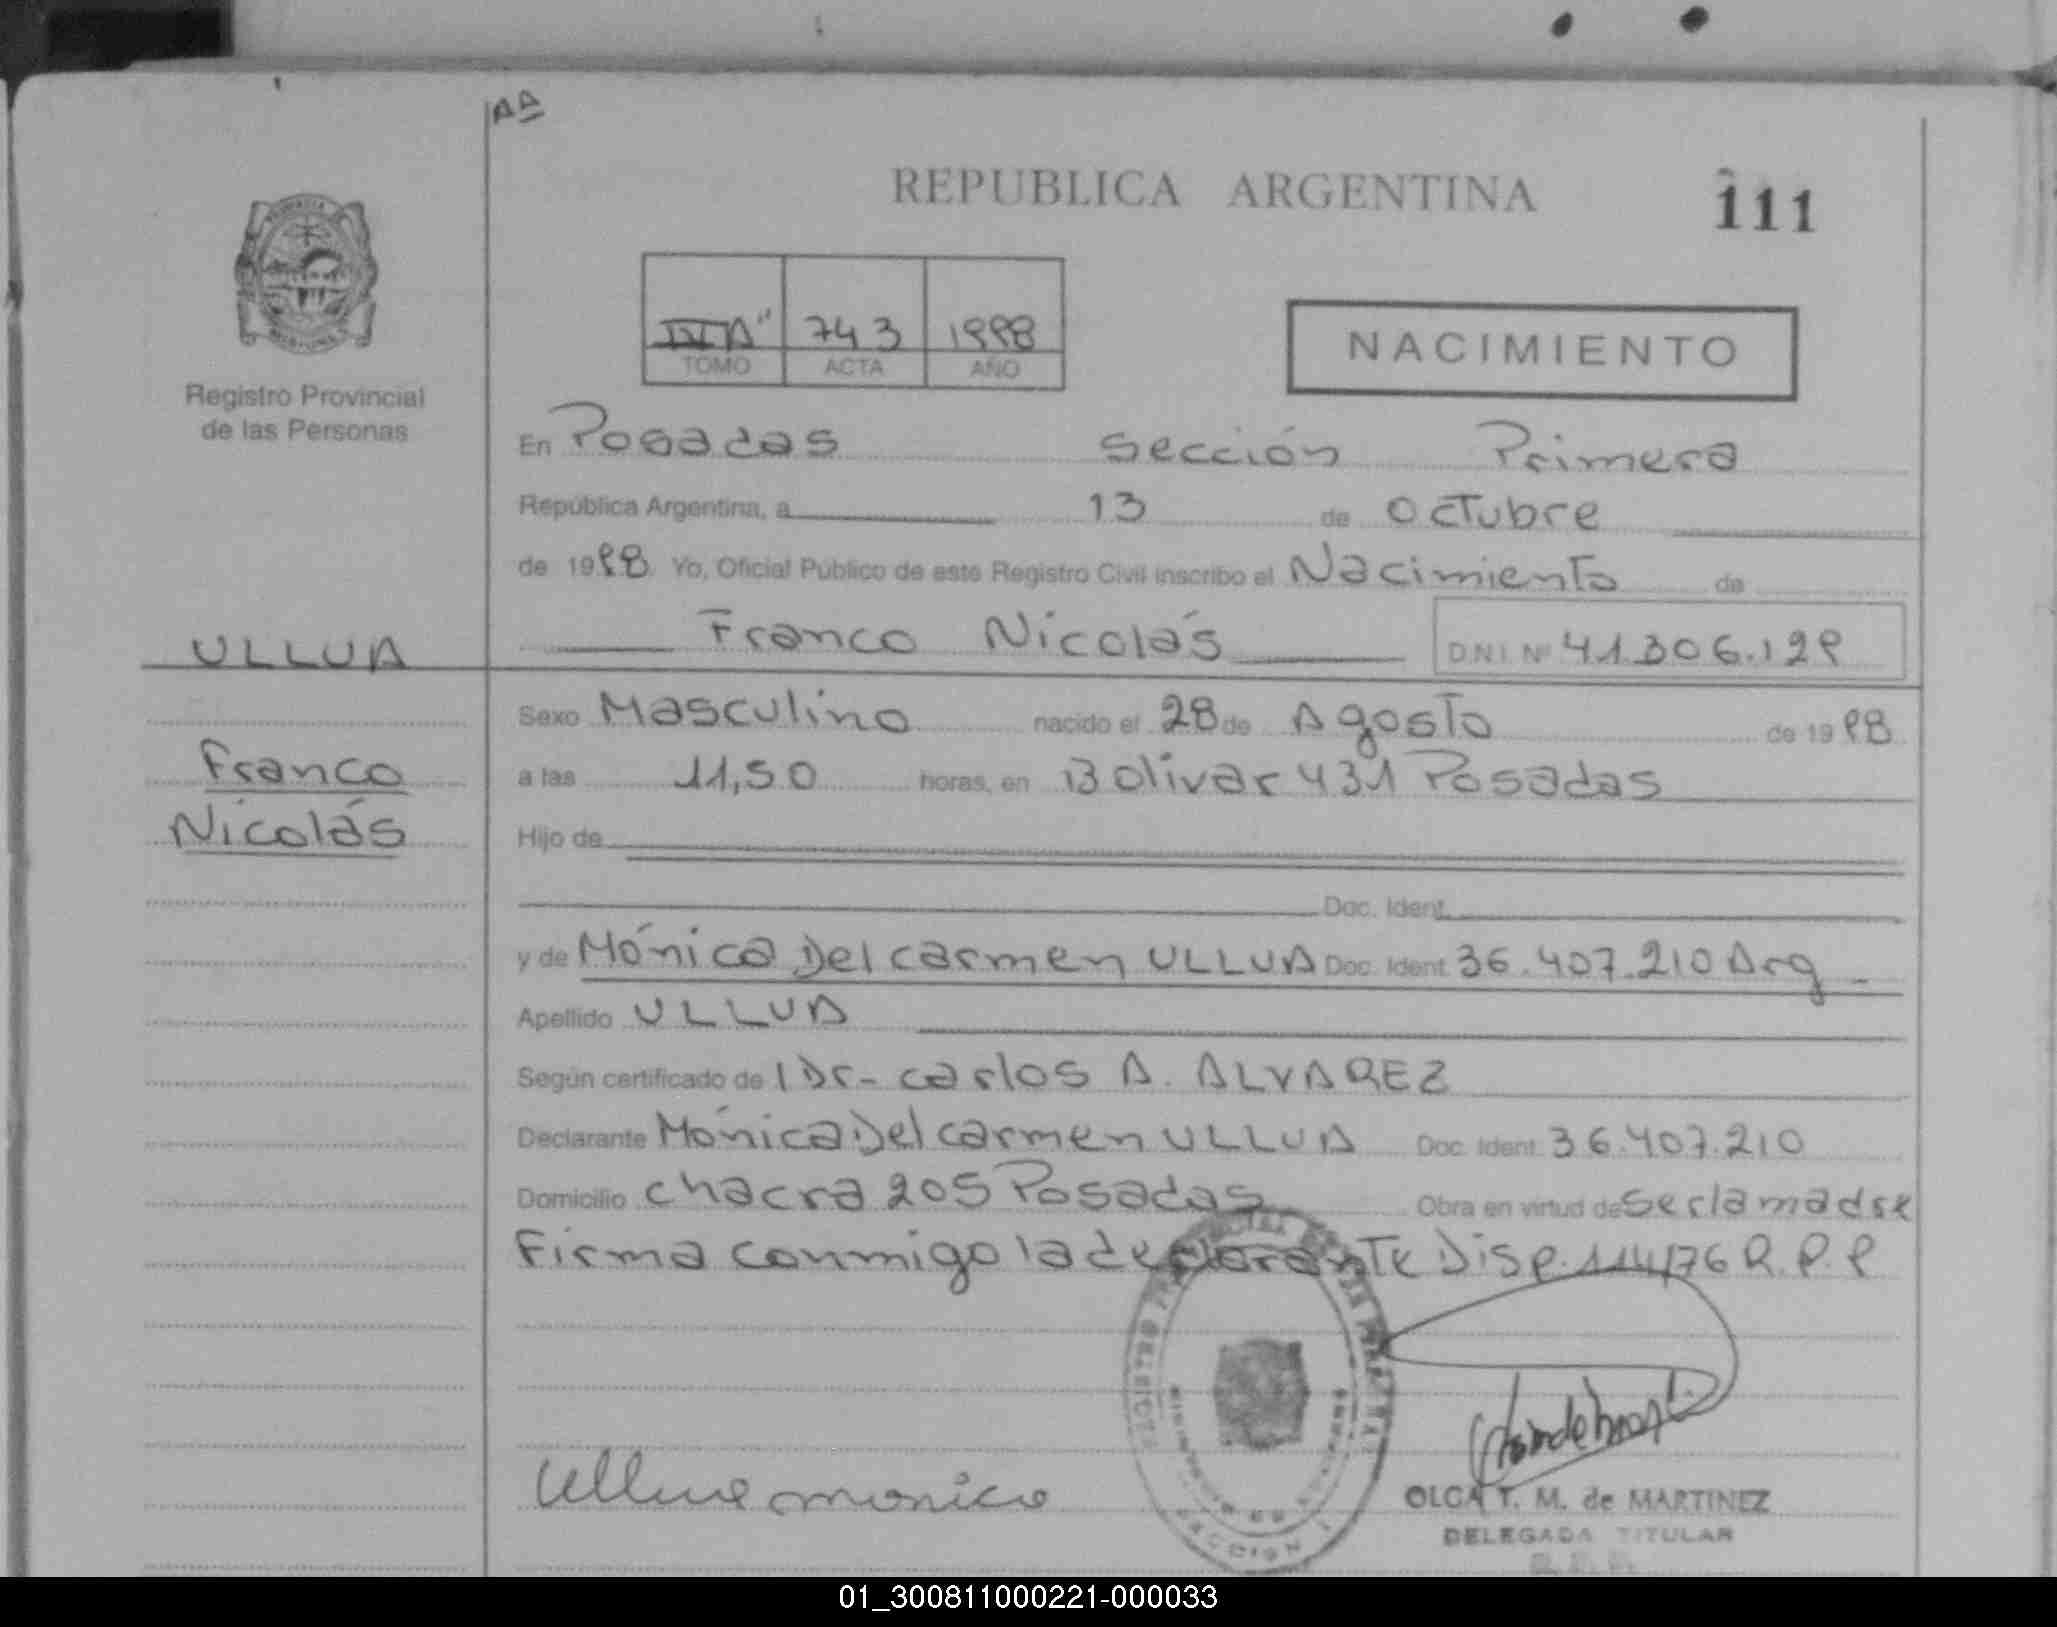 AA
REPUBLICA ARGENTINA
111
Registro Provincial
de las Personas
743 1998
TOMO ACTA AÑO
NACIMIENTO
En Posadas sección Primera
República Argentina, a 13 de Octubre
de 1998 Yo, Oficial Público de este Registro Civil inscribo el Nacimiento de
ULLUA
Franco Nicolás D.N.I. Nº 41.306.129
Sexo Masculino nacido el 28 de Agosto de 1998
Franco
Nicolás
a las 11,50 horas, en Bolivar 431 Posadas
Hijo de
Doc. Ident.
y de Mónica Del carmen ULLUA Doc. Ident. 36.407.210 Arg
Apellido ULLUA
Según certificado de Dr- carlos A. ALVAREZ
Declarante Mónica Del carmen ULLUA Doc. Ident. 36.407.210
Domicilio chacra 205 Posadas Obra en virtud de ser la madre
Firma conmigo la declarante Disp. 114/76 R.P.P
Ullua monica
OLGA T. M. de MARTINEZ
DELEGADA TITULAR
01_300811000221-000033